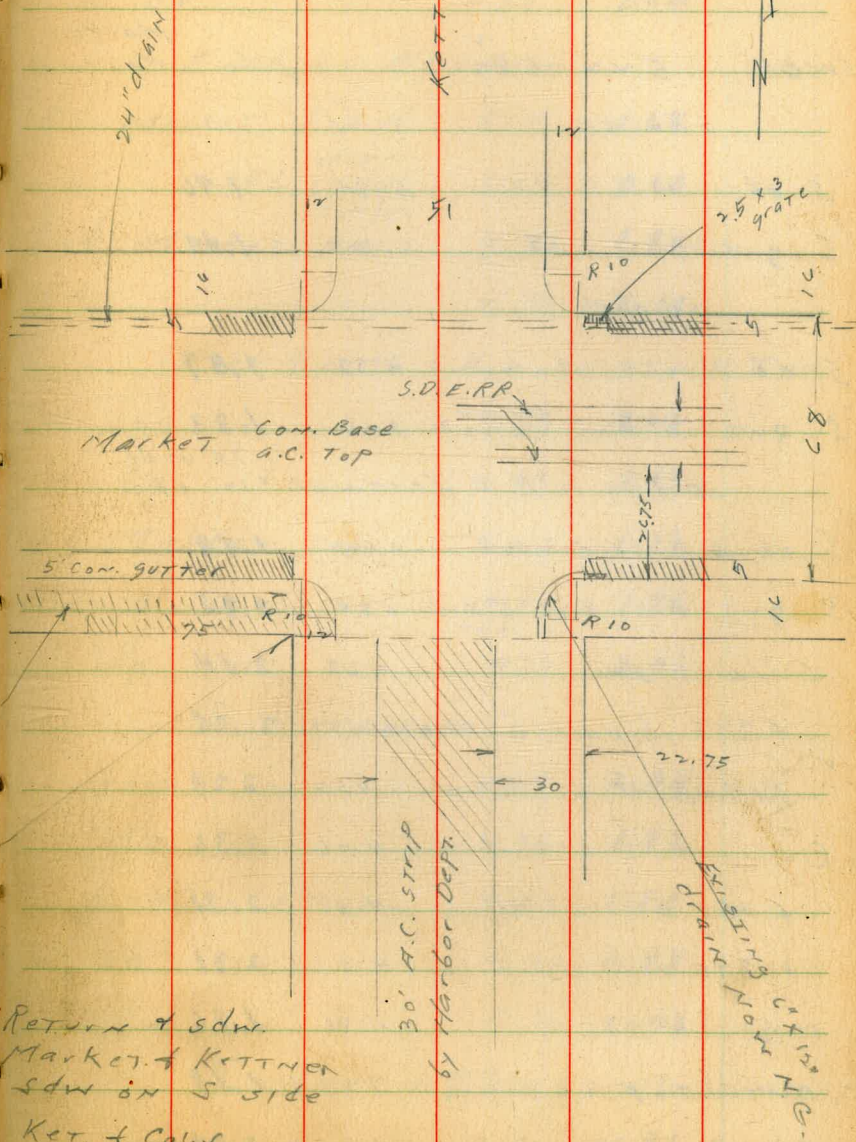 24" drain
KETT
N
12
12
51
2.5 x 3
grate
R 10
14
14
5
5
S.D.E.RR
Market
Con. Base
a.C. Top
68
26.75
5' Con. gutter
5
R 10
75
12
R 10
14
22.75
30
30' A.C. STRIP
by Harbor Dept.
EXISTING 6" X 12"
drain NOW N.G.
Return & sdw.
Market & KETTNER
sdw on S side